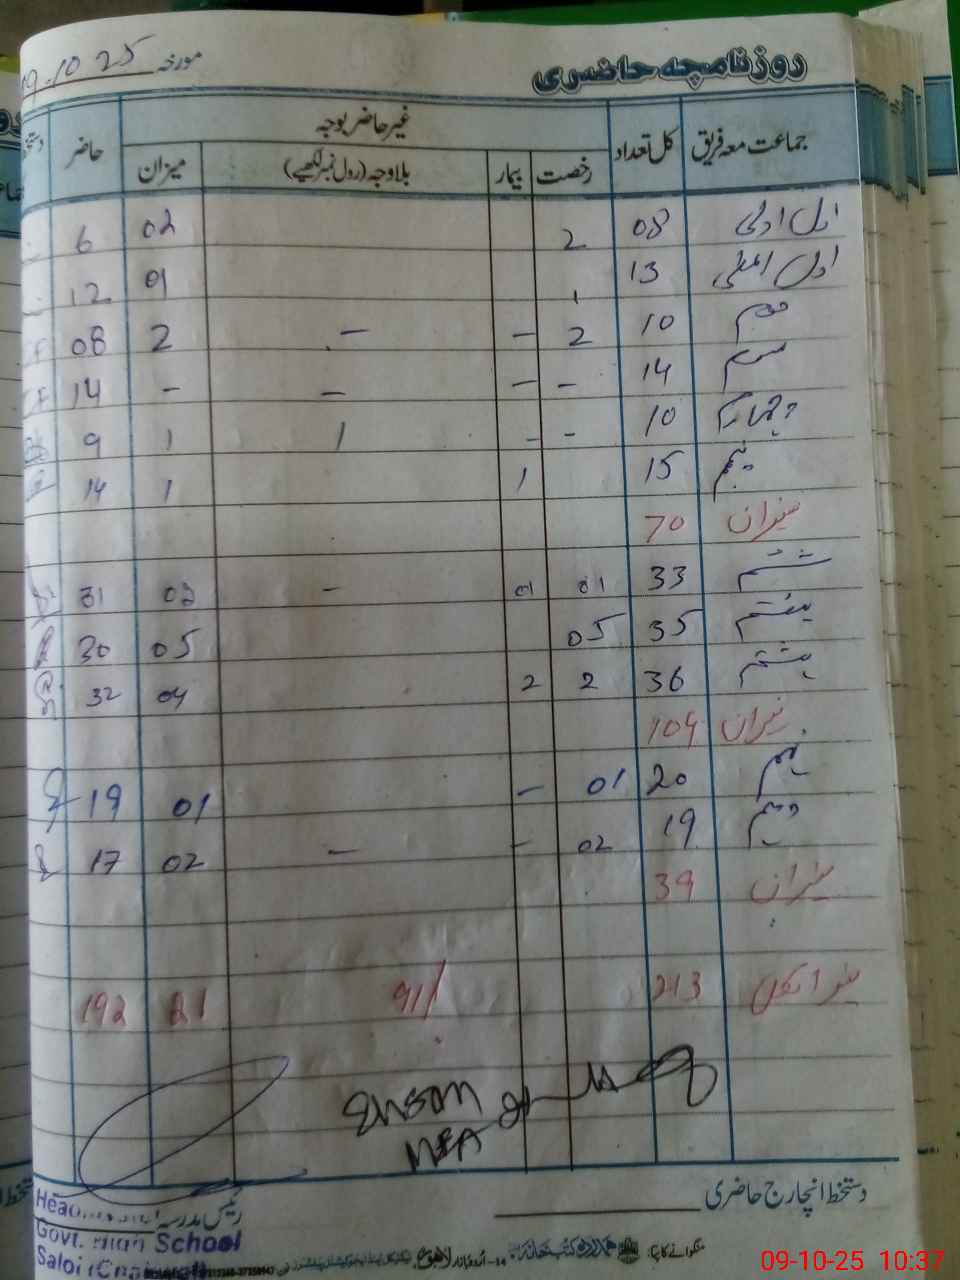 روزنامچہ حاضری مورخہ 09.10.25
جماعت معہ فریق کل تعداد غیر حاضر بوجہ حاضر
رخصت بیمار بلاوجہ (رول نمبر لکھیے) میزان
اول ادنیٰ 08 2 02 6
اول اعلیٰ 13 1 01 12
دوم 10 2 – – 2 08
سوم 14 – – – – 14
چہارم 10 - - 1 1 9
پنجم 15 1 1 14
میزان 70
ششم 33 01 01 – 02 31
ہفتم 35 05 05 30
ہشتم 36 2 2 04 32
میزان 104
نہم 20 01 – 01 19
دہم 19 02 - – 02 17
میزان 39
میزان کل 213 91% 21 192
Ehsan
MEA
دستخط انچارج حاضری
رئیس مدرسہ
Govt. High School
منگوانے کا پتہ: ہمدرد کتب خانہ لاہور
09-10-25 10:37